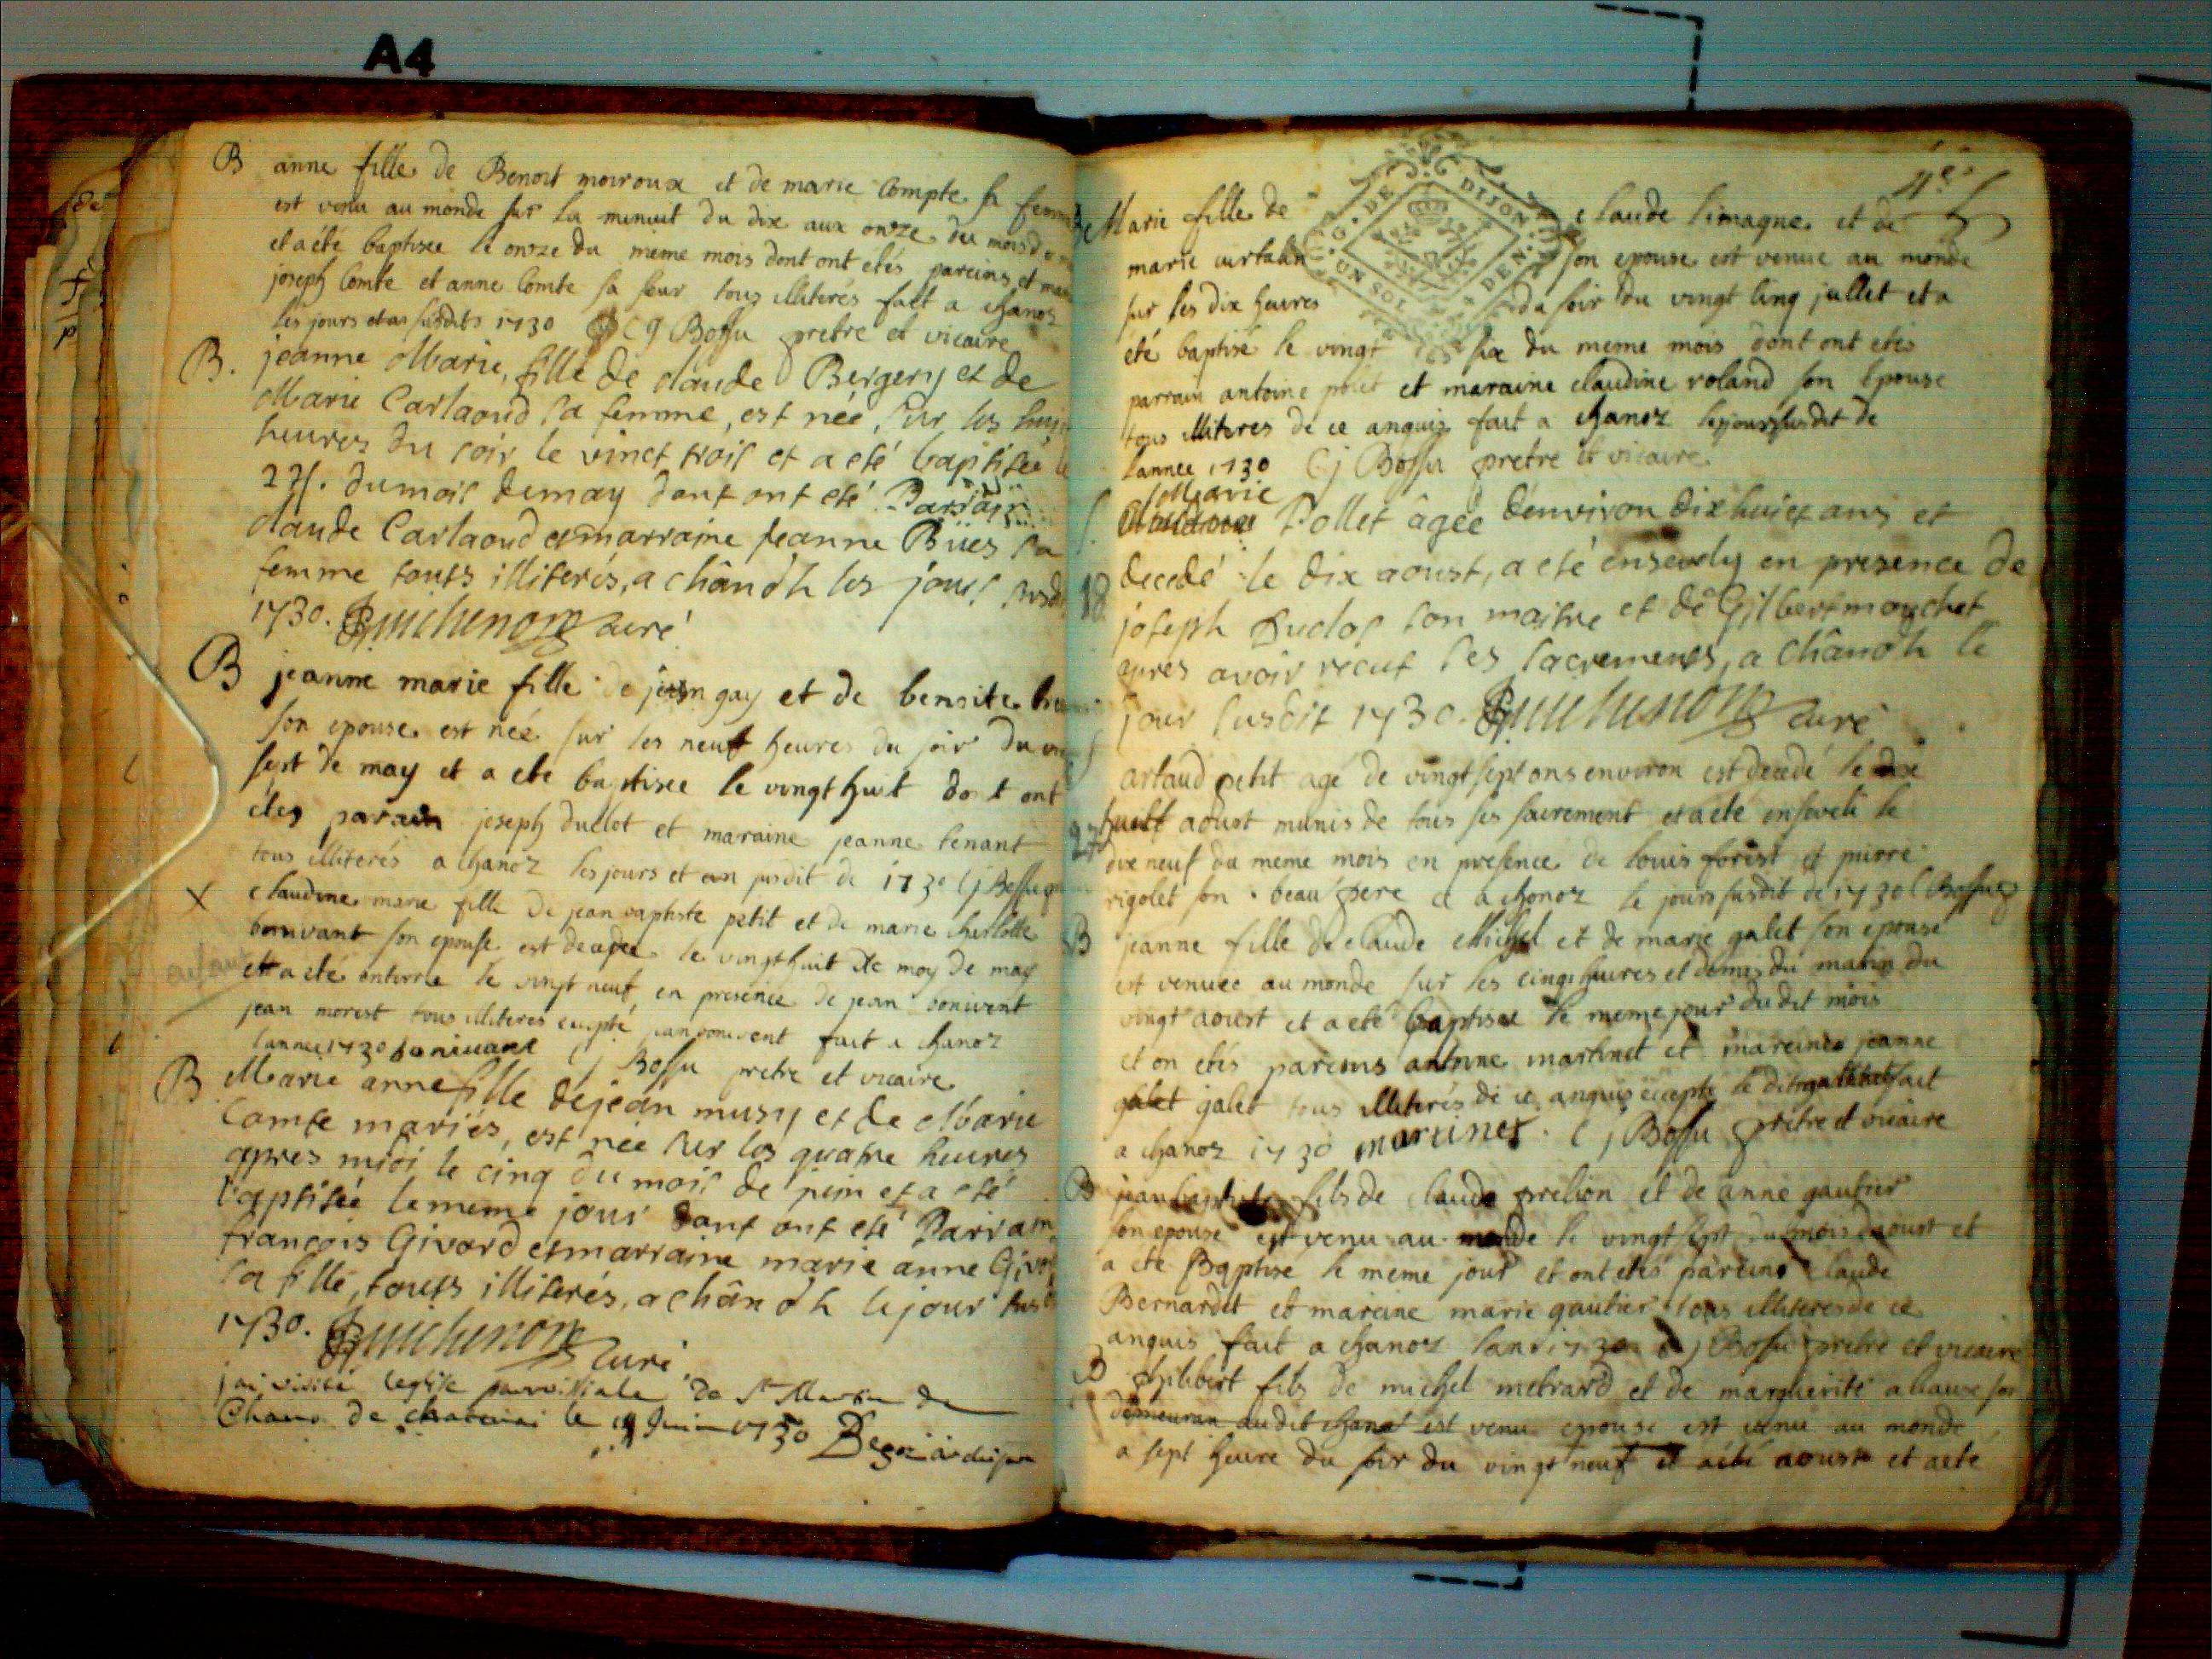 A4
B anne fille de Benoit moiroux et de marie Compte sa femme
est venu au monde sur la minuit du dix aux onze du mois
et a été baptisee le onze du meme mois dont ont etés pareins et
joseph Comte et anne Comte sa seur tous illiterés fait a chanoz
les jours et an susdits 1730 Bossu pretre et vicaire
B. jeanne Marie, fille de claude Bergery et de
Marie Carlaoud sa femme, est née, sur les huit
heures du soir le vinct trois et a eté baptisée
24. du mois demay dont ont eté Parrain
claude Carlaoud et marraine jeanne Büer sa
femme touts illiterés, a chânoz les jours
1730. Guichenon curé
B jeanne marie fille de jean gay et de benoite
son epouse est née sur les neuf heures du soir du
sept de may et a ete baptisee le vingt huit dont ont
étes parain joseph duclot et maraine jeanne tenant
tous illiterés a chanoz les jours et an susdit de 1730 Cj Bossu
X claudine marie fille de jean baptiste petit et de marie cherlotte
bonivant son epouse est decedee le vingt huit de moy de may
et a eté enterree le vingt neuf en presence de jean bonivent
jean morest tous illiteres excepté jean bonivent fait a chanoz
l'annee 1730 bonivant Cj Bossu pretre et vicaire
B Marie anne fille de jean musy et de Marie
Comte mariés, est née sur les quatre heures
apres midi le cinq du mois de juin et a eté
baptisée le meme jour dont ont eté Parrain
françois Givord et marraine marie anne Givord
sa fille, touts illiterés, a chânoz le jour
1730. Guichenon curé
j'ai visité l'eglise parroissiale de St Martin de
Chano de chatenai le 19 juin 1730
B Marie fille de claude limagne et de
marie curtalin son epouse est venue au monde
sur les dix heures du soir du vingt cinq jullet et a
été baptisé le vingt six du meme mois dont ont etés
parrain antoine polet et maraine claudine roland son epouse
tous illiteres de ce anquis fait a chanoz le jour susdit de
l'annee 1730 Cj Bossu pretre et vicaire
G. DE DIJON
UN SOL DEN.
Marie
Pollet âgée d'environ dix huict ans et
decedé le dix aoust, a eté ensevely en presence de
18
joseph Duclos son maitre et de Gilbert mouchet
apres avoir receut les sacrements, a chânoz le
jour susdit 1730. Guichenon curé
artaud petit agé de vingt sept ans environ est decedé le dix
27 huitt aoust munis de tous ses sacrement et a ete enseveli le
dix neuf du meme mois en presence de louis forest et pierre
rigolet son beau pere et a chonoz le jours susdit de 1730 C Bossu
B jeanne fille de claude Michel et de marie galet son epouse
est venuee au monde sur les cinq heures et demis du matin du
vingt aoust et a eté baptisee le meme jour du dit mois
et on etés pareins antoine martinet et mareines jeanne
galet galet tous illiterés de ce anquis excepte le dit fait
a chanoz 1730 martinet. Cj Bossu pretre et vicaire
B jean baptiste fils de claude prelion et de anne gautier
son epouse est venu au monde le vingt sept du mois d'aoust et
a ete Baptise le meme jour et ont etés pareins claude
Bernardet et mareine marie gautier tous illiteres de ce
anquis fait a chanoz l'an 1730 Cj Bossu pretre et vicaire
B philibert fils de michel metrard et de marguerite allaux son
demeuran audit chanoz est venu epouse est venu au monde
a sept heure du soir du vingt neuf et aété aoust et aeté